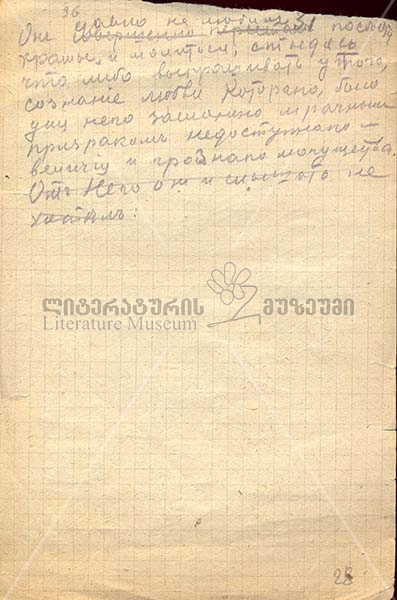 36
Он давно не любил 31
совершенно пересталъ
храмы и молиться, стыдясь
что либо выпрашивать у того,
сознаніе любви Котораго, было
него заслонено мрачным
призраком недоступнаго —
величія и грознаго могущества.
Отъ Него он и слышать не
хотѣлъ.
ლიტერატურის მუზეუმი
Literature Museum
28